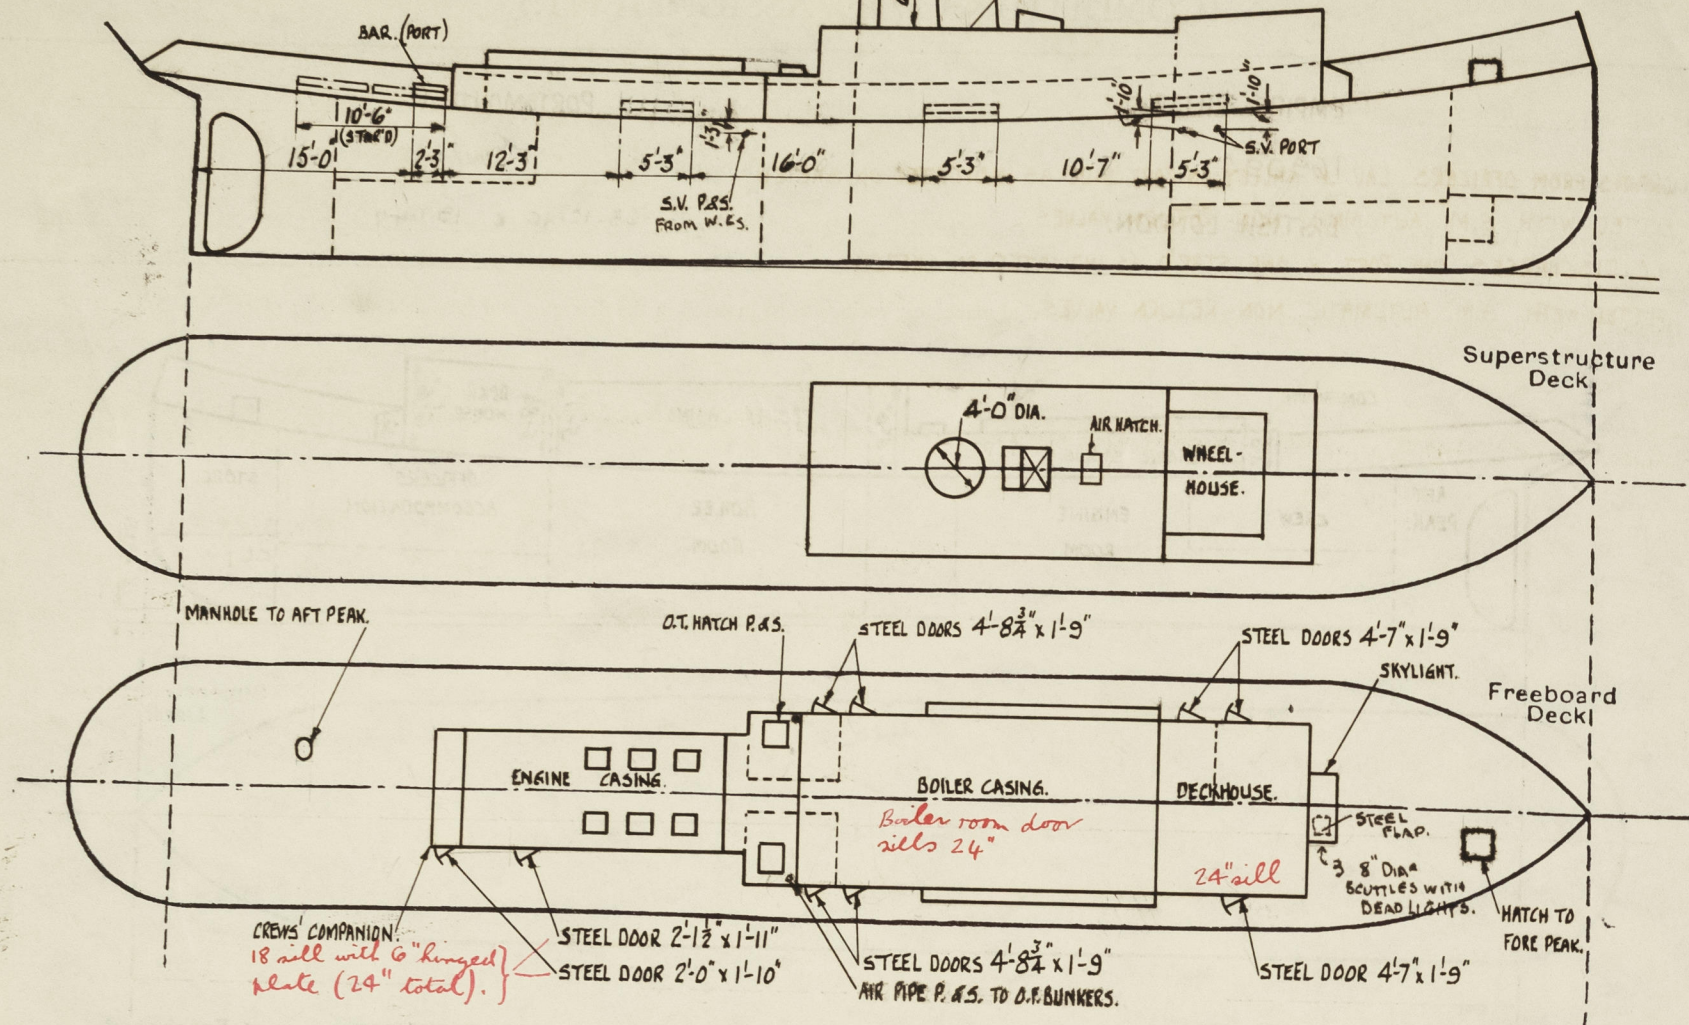 BAR. (PORT)
10'-6"
(STAR'D)
15'-0"
2'-3"
12'-3"
5'-3"
1'-3"
16'-0"
5'-3"
10'-7"
5'-3"
1'-10"
1'-10"
S.V. PORT
S.V. P.&S.
FROM W.C's.
Superstructure
Deck
4'-0" DIA.
AIR HATCH.
WHEEL-
HOUSE.
MANHOLE TO AFT PEAK.
O.T. HATCH P.&S.
STEEL DOORS 4'-8 3/4" x 1'-9"
STEEL DOORS 4'-7" x 1'-9"
SKYLIGHT.
Freeboard
Deck
ENGINE CASING.
BOILER CASING.
DECKHOUSE.
Boiler room door
sills 24"
24" sill
STEEL
FLAP.
3 8" DIAR
SCUTTLES WITH
DEAD LIGHTS.
HATCH TO
FORE PEAK.
CREWS' COMPANION.
18 sill with 6" hinged
plate (24" total).
STEEL DOOR 2'-1 1/2" x 1'-11"
STEEL DOOR 2'-0" x 1'-10"
STEEL DOORS 4'-8 3/4" x 1'-9"
AIR PIPE P. &S. TO O.F. BUNKERS.
STEEL DOOR 4'-7" x 1'-9"